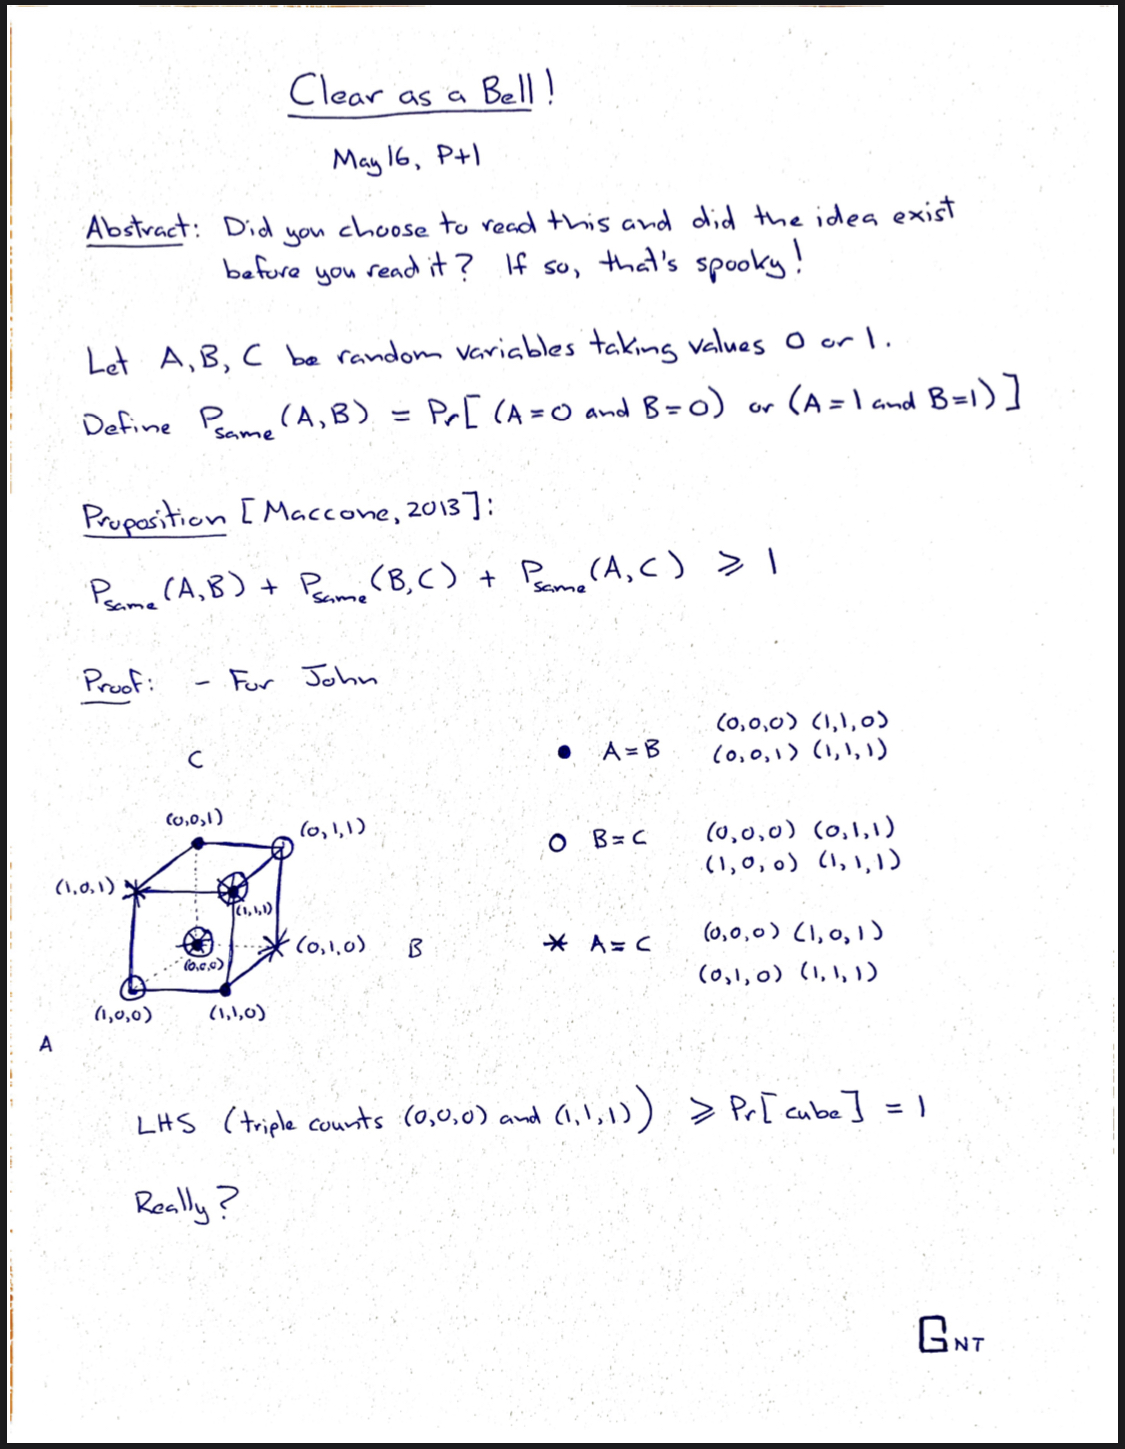 Clear as a Bell!
May 16, P+1
Abstract: Did you choose to read this and did the idea exist
before you read it? If so, that's spooky!
Let A, B, C be random variables taking values 0 or 1.
Define P_same (A,B) = Pr[ (A=0 and B=0) or (A=1 and B=1) ]
Proposition [Maccone, 2013]:
P_same (A,B) + P_same (B,C) + P_same (A,C) ⩾ 1
Proof: - For John
C
(0,0,1)
(0,1,1)
(1,0,1)
(1,1,1)
(0,1,0) B
(0,0,0)
(1,0,0) (1,1,0)
A
● A=B (0,0,0) (1,1,0)
(0,0,1) (1,1,1)
○ B=C (0,0,0) (0,1,1)
(1,0,0) (1,1,1)
* A=C (0,0,0) (1,0,1)
(0,1,0) (1,1,1)
LHS (triple counts (0,0,0) and (1,1,1)) ⩾ Pr[cube] = 1
Really?
GNT